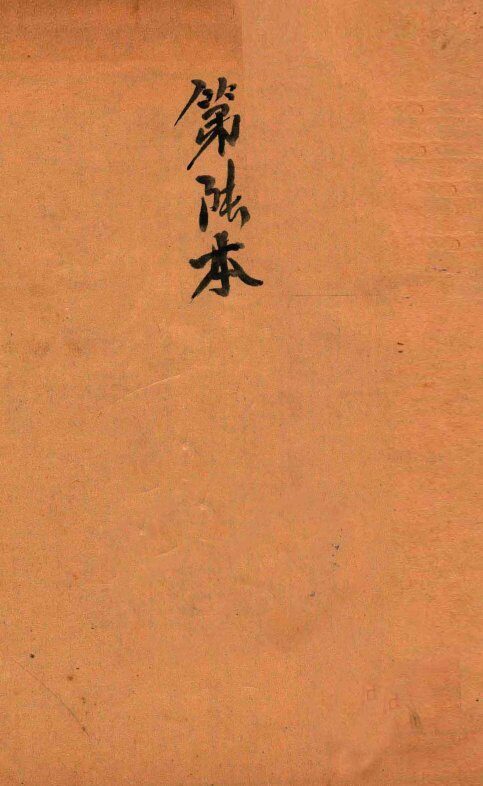 第陸本